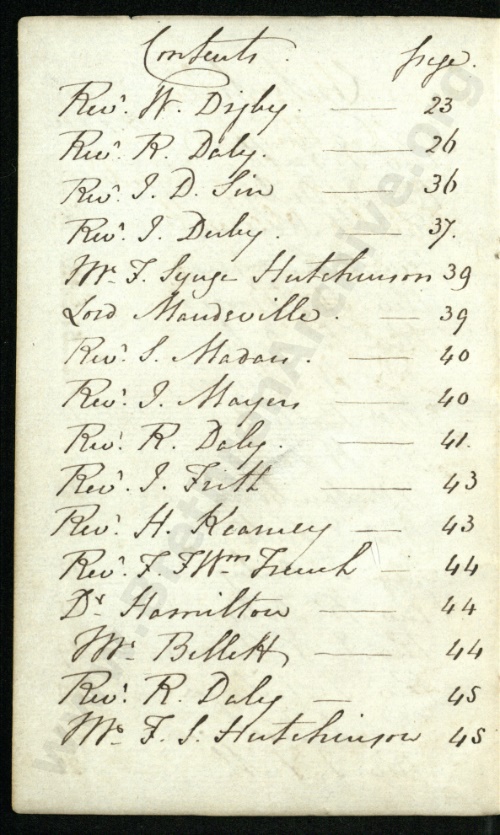 Contents. page.
Revd. W. Digby. — 23
Revd. R. Daly. — 26
Revd. J. D. Sirr — 36
Revd. J. Derby. — 37.
Mr. F. Synge Hutchinson 39
Lord Mandeville. — 39
Revd. S. Madan. — 40
Revd. J. Mayers — 40
Revd. R. Daly. — 41.
Revd. J. Frith — 43
Revd. H. Kearney — 43
Revd. F. FWm French — 44
Dr Hamilton — 44
Mr. Bellett — 44
Revd. R. Daly — 45
Mr. F. S. Hutchinson 45
www.BrethrenArchive.org